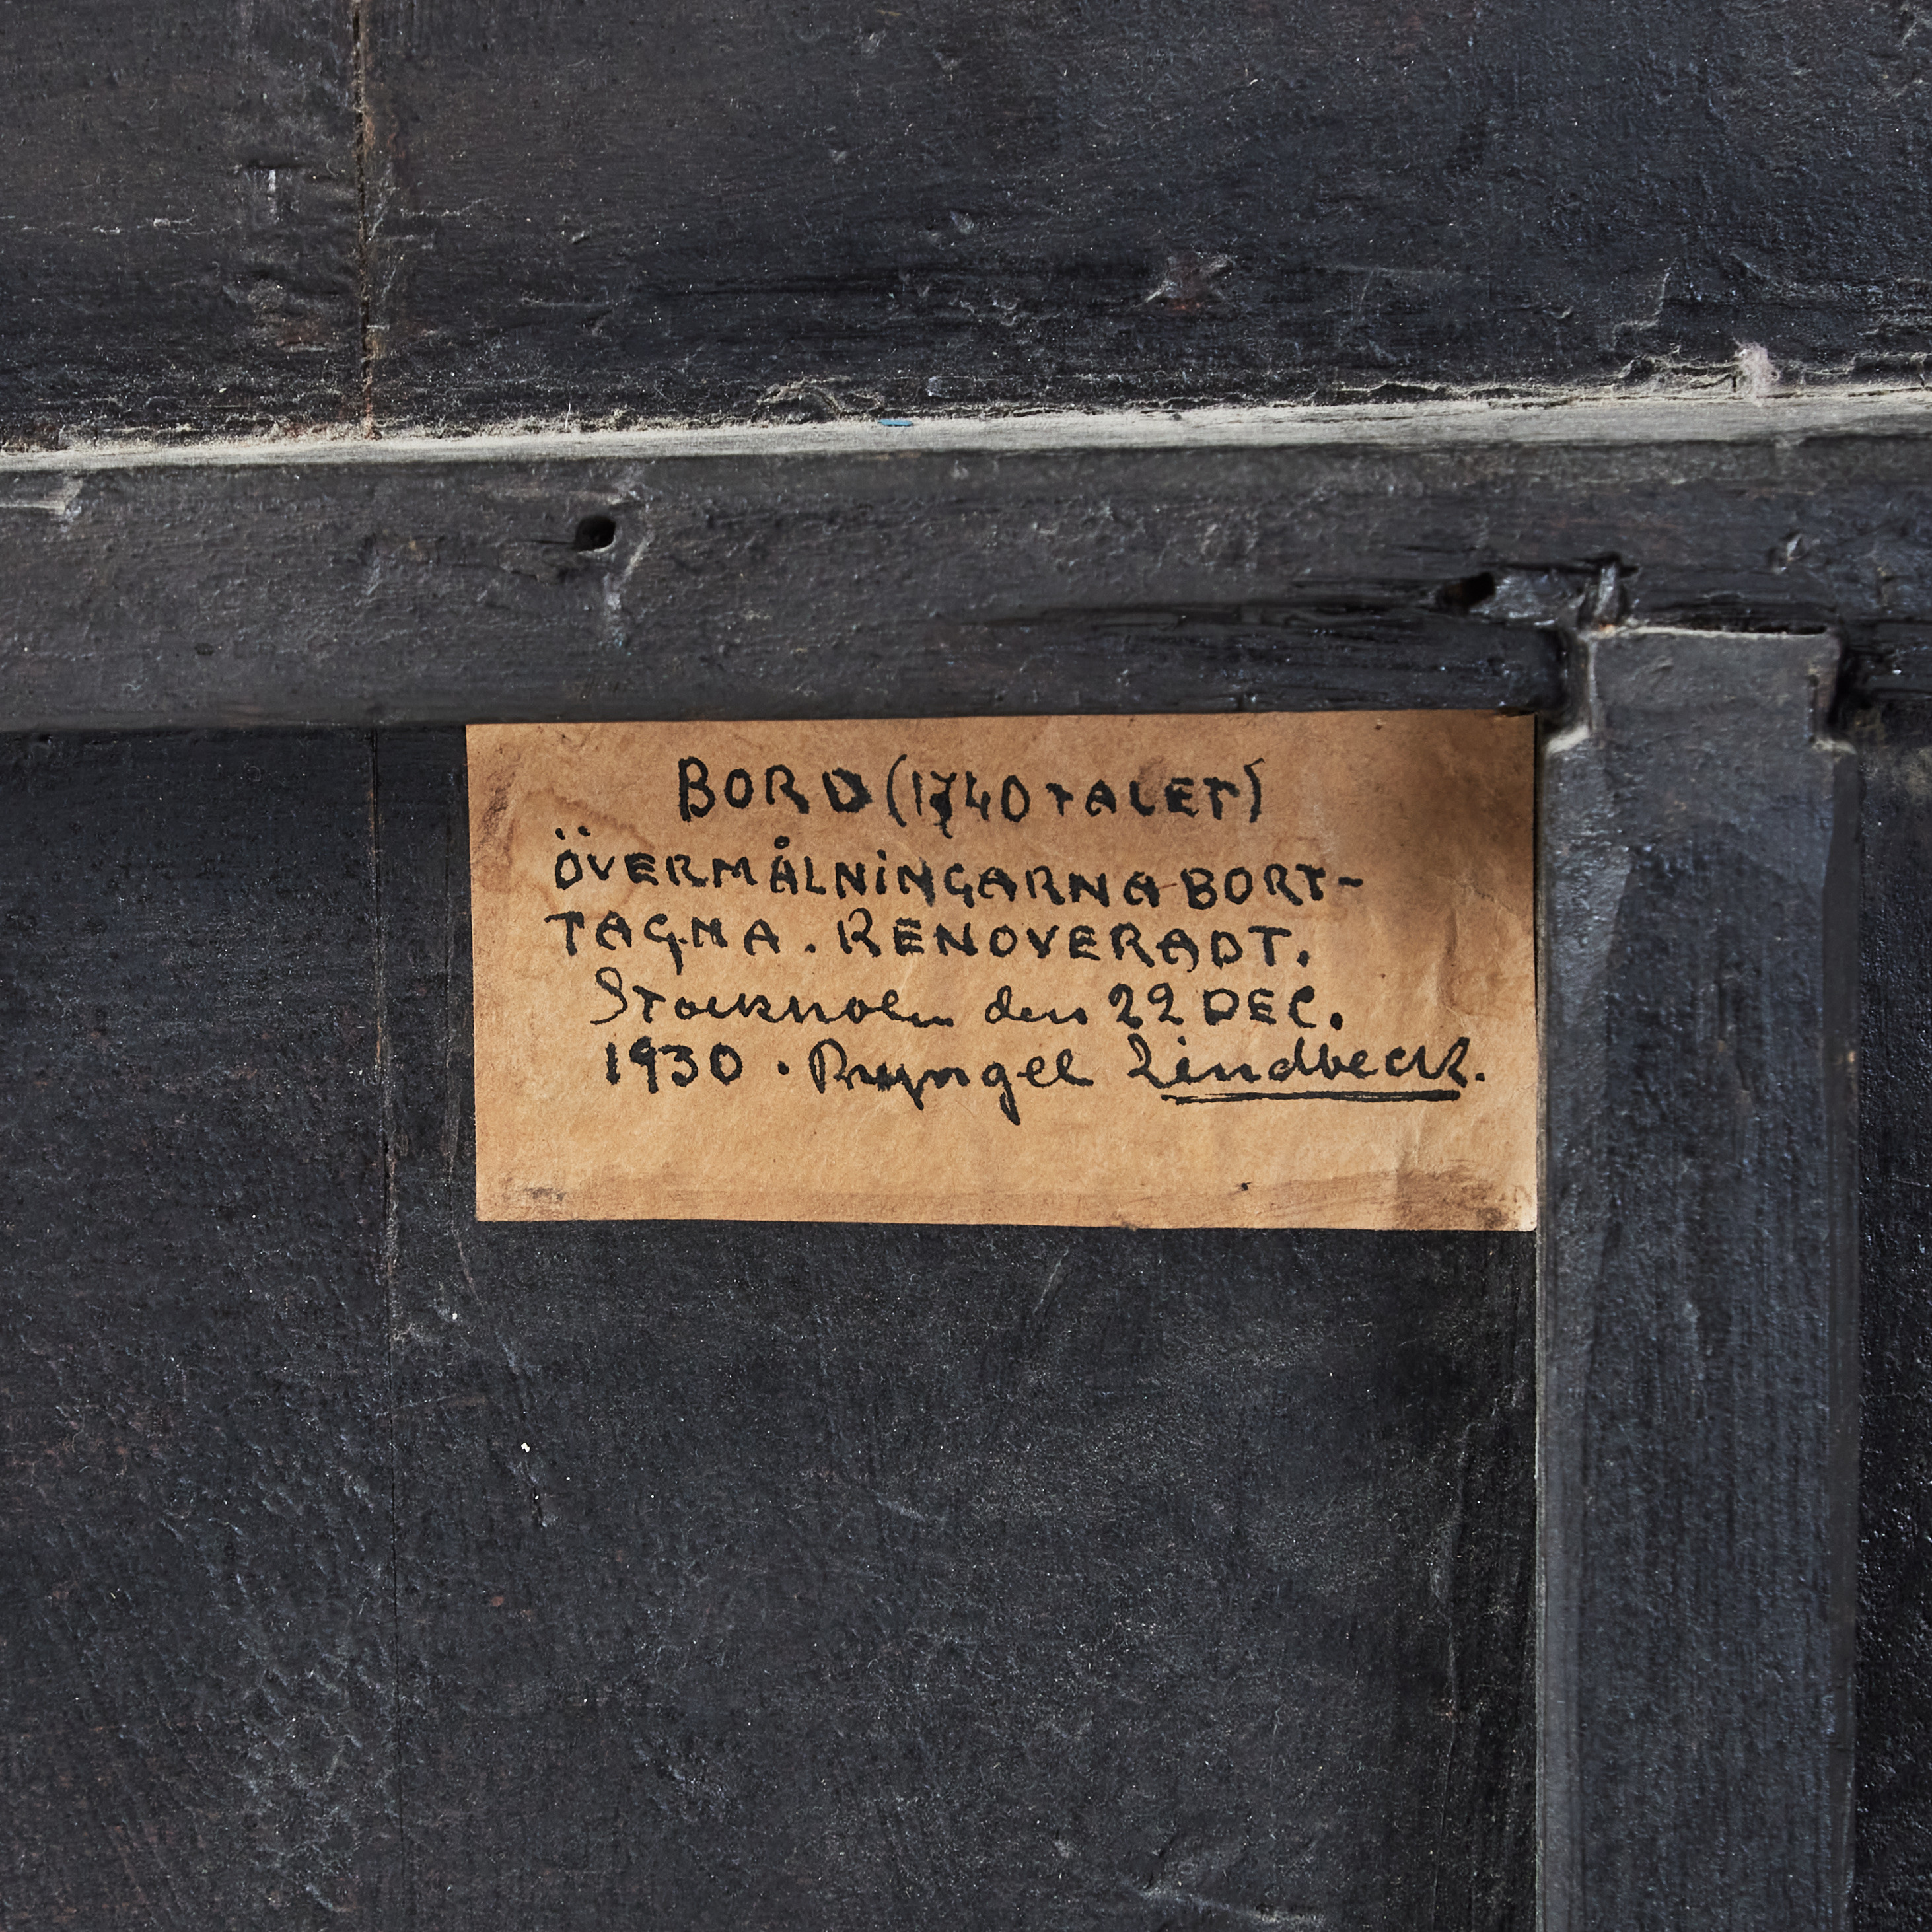 BORD (1740 TALET)
ÖVERMÅLNINGARNA BORT-
TAGNA. RENOVERADT.
Stockholm den 22 DEC.
1930. Lindbeck.